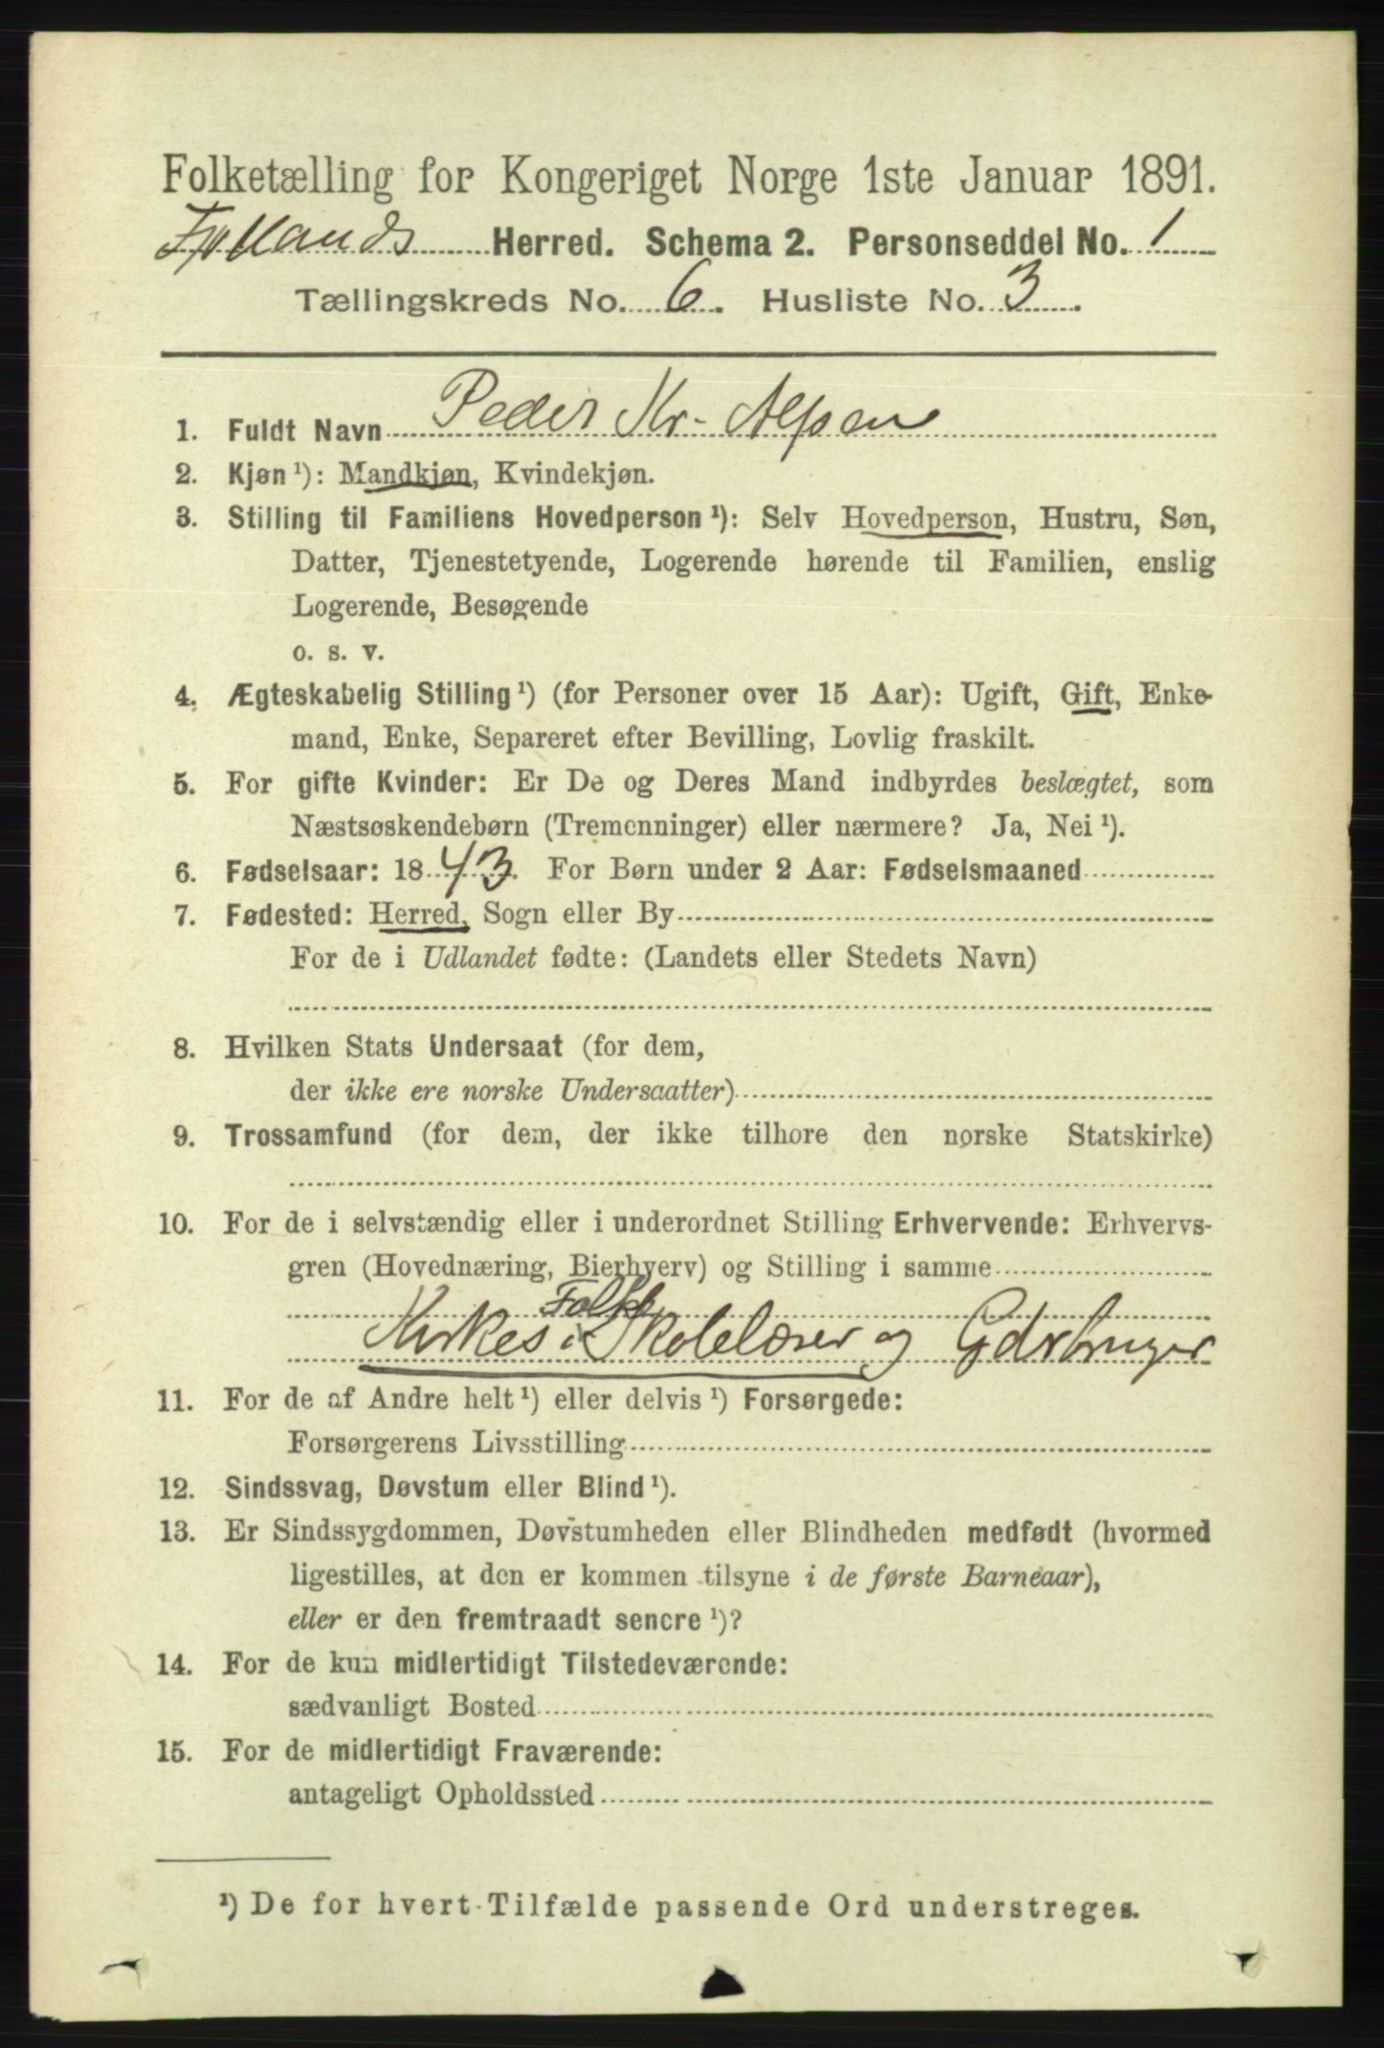 Folketælling for Kongeriget Norge 1ste Januar 1891.
Herred. Schema 2. Personseddel No. 1
Tællingskreds No. 6. Husliste No. 3.
1. Fuldt Navn Peder Kr.
2. Kjøn ¹): Mandkjøn, Kvindekjøn.
3. Stilling til Familiens Hovedperson ¹): Selv Hovedperson, Hustru, Søn,
Datter, Tjenestetyende, Logerende hørende til Familien, enslig
Logerende, Besøgende
o. s. v.
4. Ægteskabelig Stilling ¹) (for Personer over 15 Aar): Ugift, Gift, Enke-
mand, Enke, Separeret efter Bevilling, Lovlig fraskilt.
5. For gifte Kvinder: Er De og Deres Mand indbyrdes beslægtet, som
Næstsøskendebørn (Tremenninger) eller nærmere? Ja, Nei ¹).
6. Fødselsaar: 1843. For Børn under 2 Aar: Fødselsmaaned
7. Fødested: Herred, Sogn eller By
For de i Udlandet fødte: (Landets eller Stedets Navn)
8. Hvilken Stats Undersaat (for dem,
der ikke ere norske Undersaatter)
9. Trossamfund (for dem, der ikke tilhøre den norske Statskirke)
10. For de i selvstændig eller i underordnet Stilling Erhvervende: Erhvervs-
gren (Hovednæring, Bierhverv) og Stilling i samme
Folke
Skolelærer og Gdrbruger
11. For de af Andre helt ¹) eller delvis ¹) Forsørgede:
Forsørgerens Livsstilling
12. Sindssvag, Døvstum eller Blind ¹).
13. Er Sindssygdommen, Døvstumheden eller Blindheden medfødt (hvormed
ligestilles, at den er kommen tilsyne i de første Barneaar),
eller er den fremtraadt senere ¹)?
14. For de kun midlertidigt Tilstedeværende:
sædvanligt Bosted
15. For de midlertidigt Fraværende:
antageligt Opholdssted
¹) De for hvert Tilfælde passende Ord understreges.